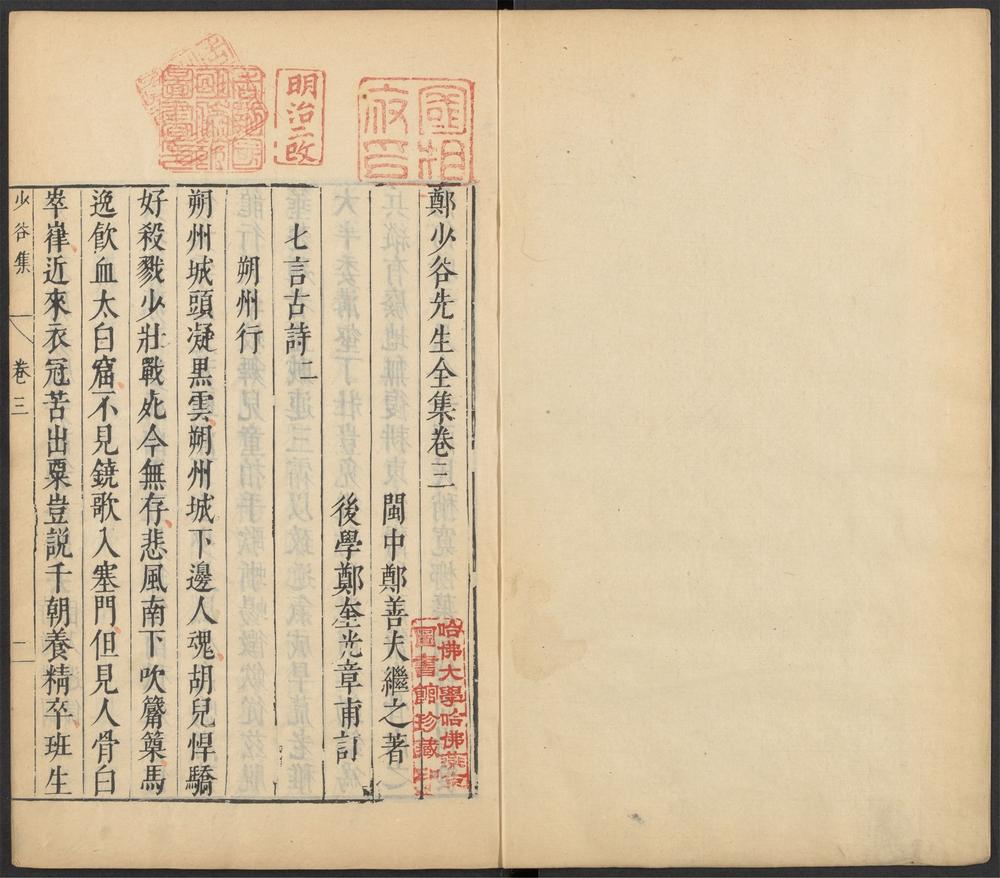 鄭少谷先生全集卷三
閩中鄭善夫繼之著
後學鄭奎光章甫訂
七言古詩二
朔州行
朔州城頭凝黒雲朔州城下邊人魂胡兒悍驕
好殺戮少壯戰死今無存悲風南下吹觱篥馬
逸飲血太白窟不見鐃歌入塞門但見人骨白
崒嵂近來衣冠苦出粟豈説千朝養精卒班生
少谷集
卷三
一
明治二改
哈佛大學哈佛燕京
圖書館珍藏印